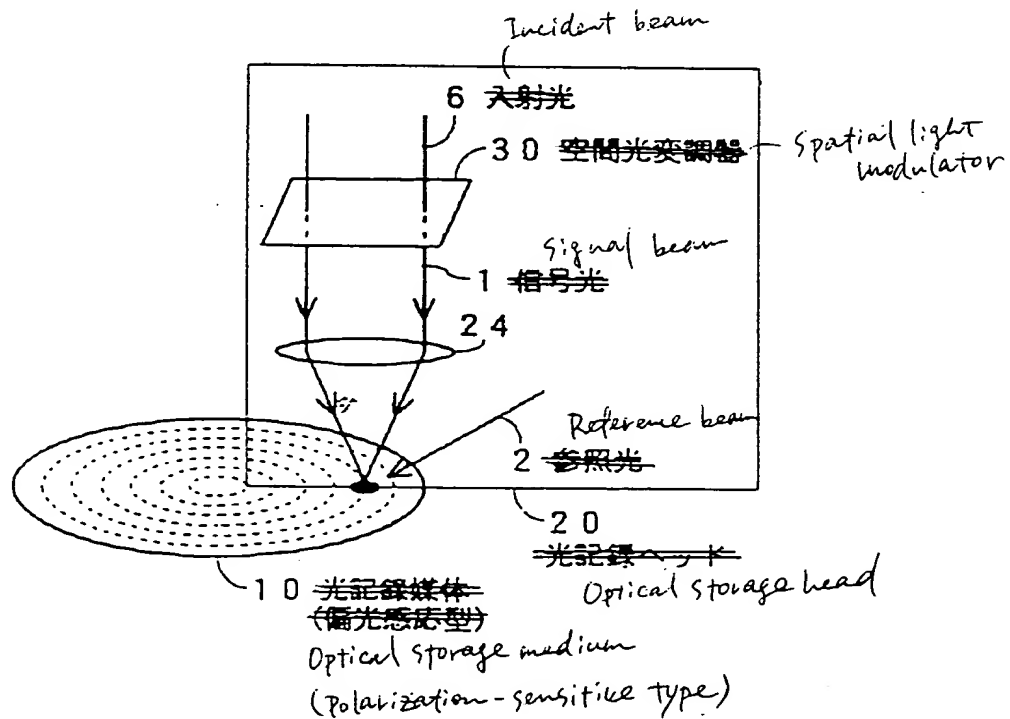 Incident beam
6 入射光
30 空間光変調器
Spatial light
modulator
Signal beam
1 信号光
24
Reference beam
2 参照光
20
光記録ヘッド
Optical storage head
10 光記録媒体
(偏光感応型)
Optical storage medium
(polarization-sensitive type)